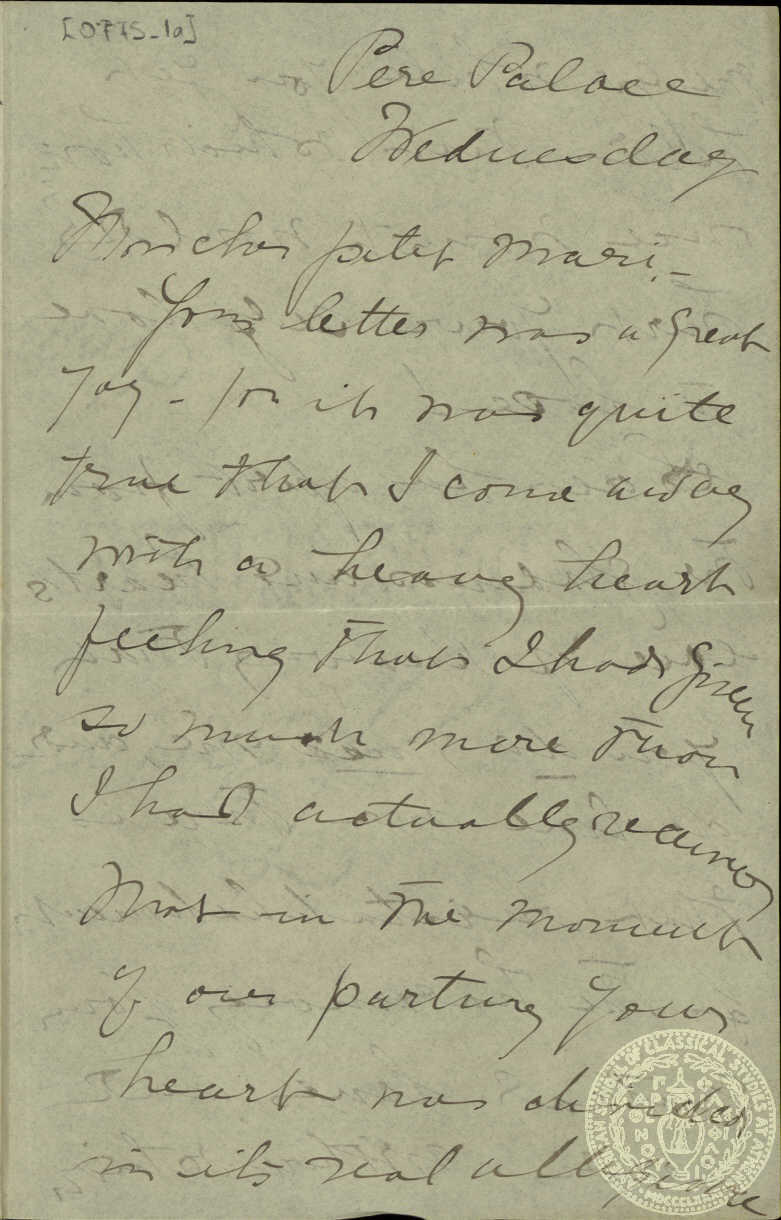 [0775_1a]
Pera Palace
Wednesday
Mon cher petit Mari –
Your letter was a great
joy – for it was quite
true that I come away
with a heavy heart
feeling that I had given
so much more than
I had actually received
that in the moment
of our parting your
heart was divided
in its real allegiance
SCHOOL OF CLASSICAL STUDIES AT